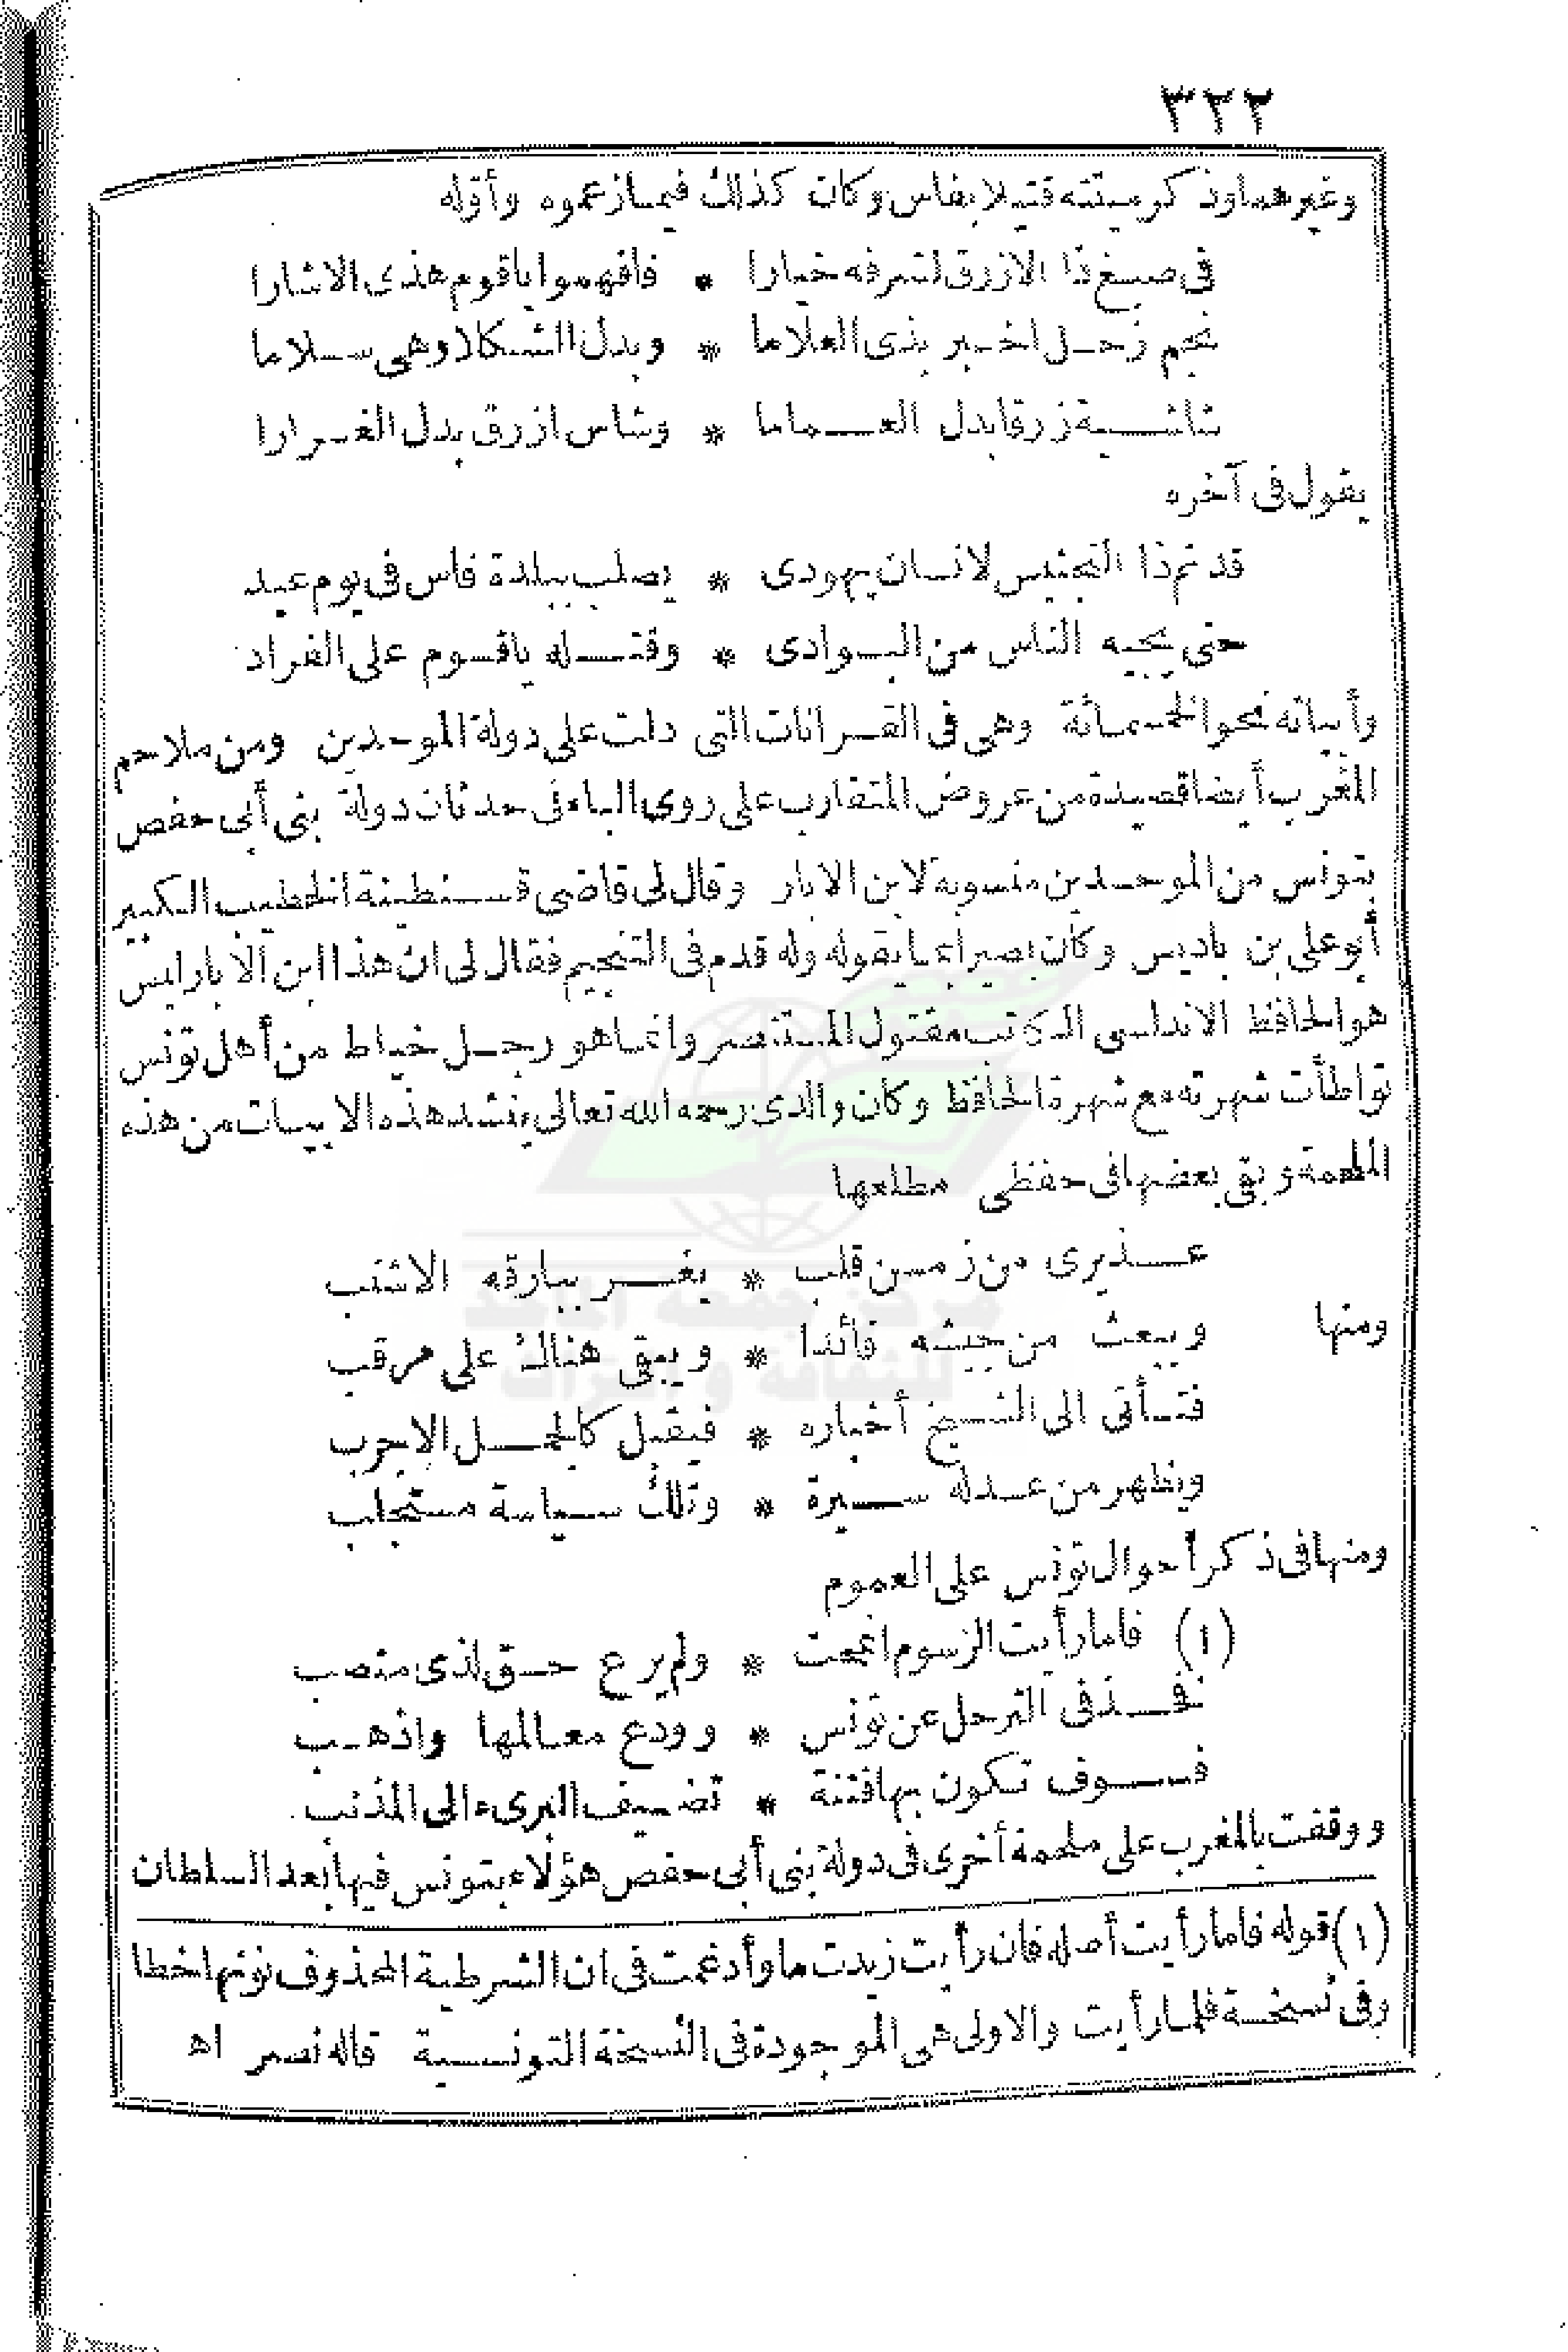 ٣٢٢
وغيرهما وذكر ميتته قتيلا بفاس وكان كذلك فيما زعموه وأوّله
فى صبغ ذا الازرق لشرفه خيارا * فافهموا ياقوم هذى الاشارا
نجم زحل اخبر بذى العلاما * وبدل الشكلا وهى سلاما
شاشية زرقا بدل العماما * وشاس ازرق بدل الغرارا
يقول فى آخره
قد تم ذا التجنيس لانسان يهودى * يصلب ببلدة فاس فى يوم عيد
حتى يجيه الناس من البوادى * وقتله ياقوم على الفراد
وأبياته نحو الخمسمائة وهى فى القرانات التى دلت على دولة الموحدين ومن ملاحم
المغرب أيضا قصيدة من عروض المتقارب على روى الباء فى حدثان دولة بنى أبى حفص
بتونس من الموحدين منسوبة لابن الابار وقال لى قاضى قسنطينة الخطيب الكبير
أبو على بن باديس وكان بصيرا بما يقوله وله قدم فى التنجيم فقال لى ان هذا ابن الابار ليس
هو الحافظ الاندلسى الكاتب مقتول المستنصر وانما هو رجل خياط من أهل تونس
تواطأت شهرته مع شهرة الحافظ وكان والدى رحمه الله تعالى ينشد هذه الابيات من هذه
الملحمة وبقى بعضها فى حفظى مطلعها
عذيرى من زمن قلب * يغر ببارقه الاشنب
ومنها ويبعث من جيشه قائدا * ويبقى هناك على مرقب
فتأتى الى الشيخ أخباره * فيقبل كالجمل الاجرب
ويظهر من عدله سيرة * وتلك سياسة مستجلب
ومنها فى ذكر أحوال تونس على العموم
(١) فاما رأيت الرسوم انمحت * ولم يرع حق لذى منصب
فخذ فى الترحل عن تونس * وودع معالمها واذهب
فسوف تكون بها فتنة * تضيف البرىء الى المذنب
ووقفت بالمغرب على ملحمة أخرى فى دولة بنى أبى حفص هؤلاء بتونس فيها بعد السلطان
(١) قوله فاما رأيت أصله فان رأيت زيدت ما وأدغمت فى ان الشرطية المحذوف نونها خطا
وفى نسخة فلما رأيت والاولى هى الموجودة فى النسخة التونسية قاله نصر اه
مركز جمعة الماجد
للثقافة و التراث